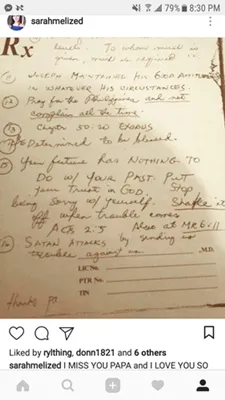 79% 8:30 PM
sarahmelized
Rx
To whom much is
given, much is required
11 JOSEPH MAINTAINS HIS GOD
WHATEVER HIS CIRCUMSTANCES.
12 Pray for the Philippines and not
complain all the time
13 Chapter 50:20 EXODUS
Determined to be blessed.
15 Your future has NOTHING TO
DO W/ YOUR PAST. PUT
your trust in GOD. Stop
being sorry w/ yourself. Shake it
off when trouble comes
ACTS 2:5 Also at MK 6:11
16 SATAN ATTACKS by sending us
trouble against us
, M.D.
LIC No.
PTR No.
TIN
thanks po
Liked by rylthing, donn1821 and 6 others
sarahmelized I MISS YOU PAPA and I LOVE YOU SO